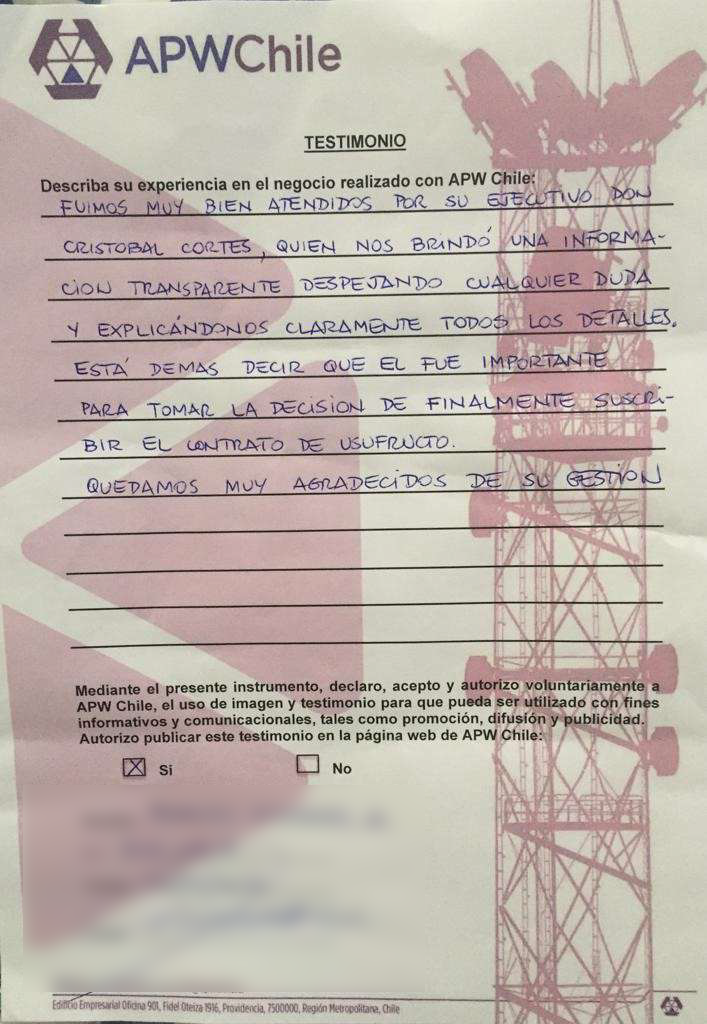 APWChile
TESTIMONIO
Describa su experiencia en el negocio realizado con APW Chile:
FUIMOS MUY BIEN ATENDIDOS POR SU EJECUTIVO DON
CRISTOBAL CORTES, QUIEN NOS BRINDÓ UNA INFORMA-
CION TRANSPARENTE DESPEJANDO CUALQUIER DUDA
Y EXPLICÁNDONOS CLARAMENTE TODOS LOS DETALLES.
ESTÁ DEMAS DECIR QUE EL FUE IMPORTANTE
PARA TOMAR LA DECISION DE FINALMENTE SUSCRI-
BIR EL CONTRATO DE USUFRUCTO.
QUEDAMOS MUY AGRADECIDOS DE SU GESTION
Mediante el presente instrumento, declaro, acepto y autorizo voluntariamente a
APW Chile, el uso de imagen y testimonio para que pueda ser utilizado con fines
informativos y comunicacionales, tales como promoción, difusión y publicidad.
Autorizo publicar este testimonio en la página web de APW Chile:
Si No
Edificio Empresarial Oficina 901, Fidel Oteiza 1916, Providencia, 7500000, Región Metropolitana, Chile